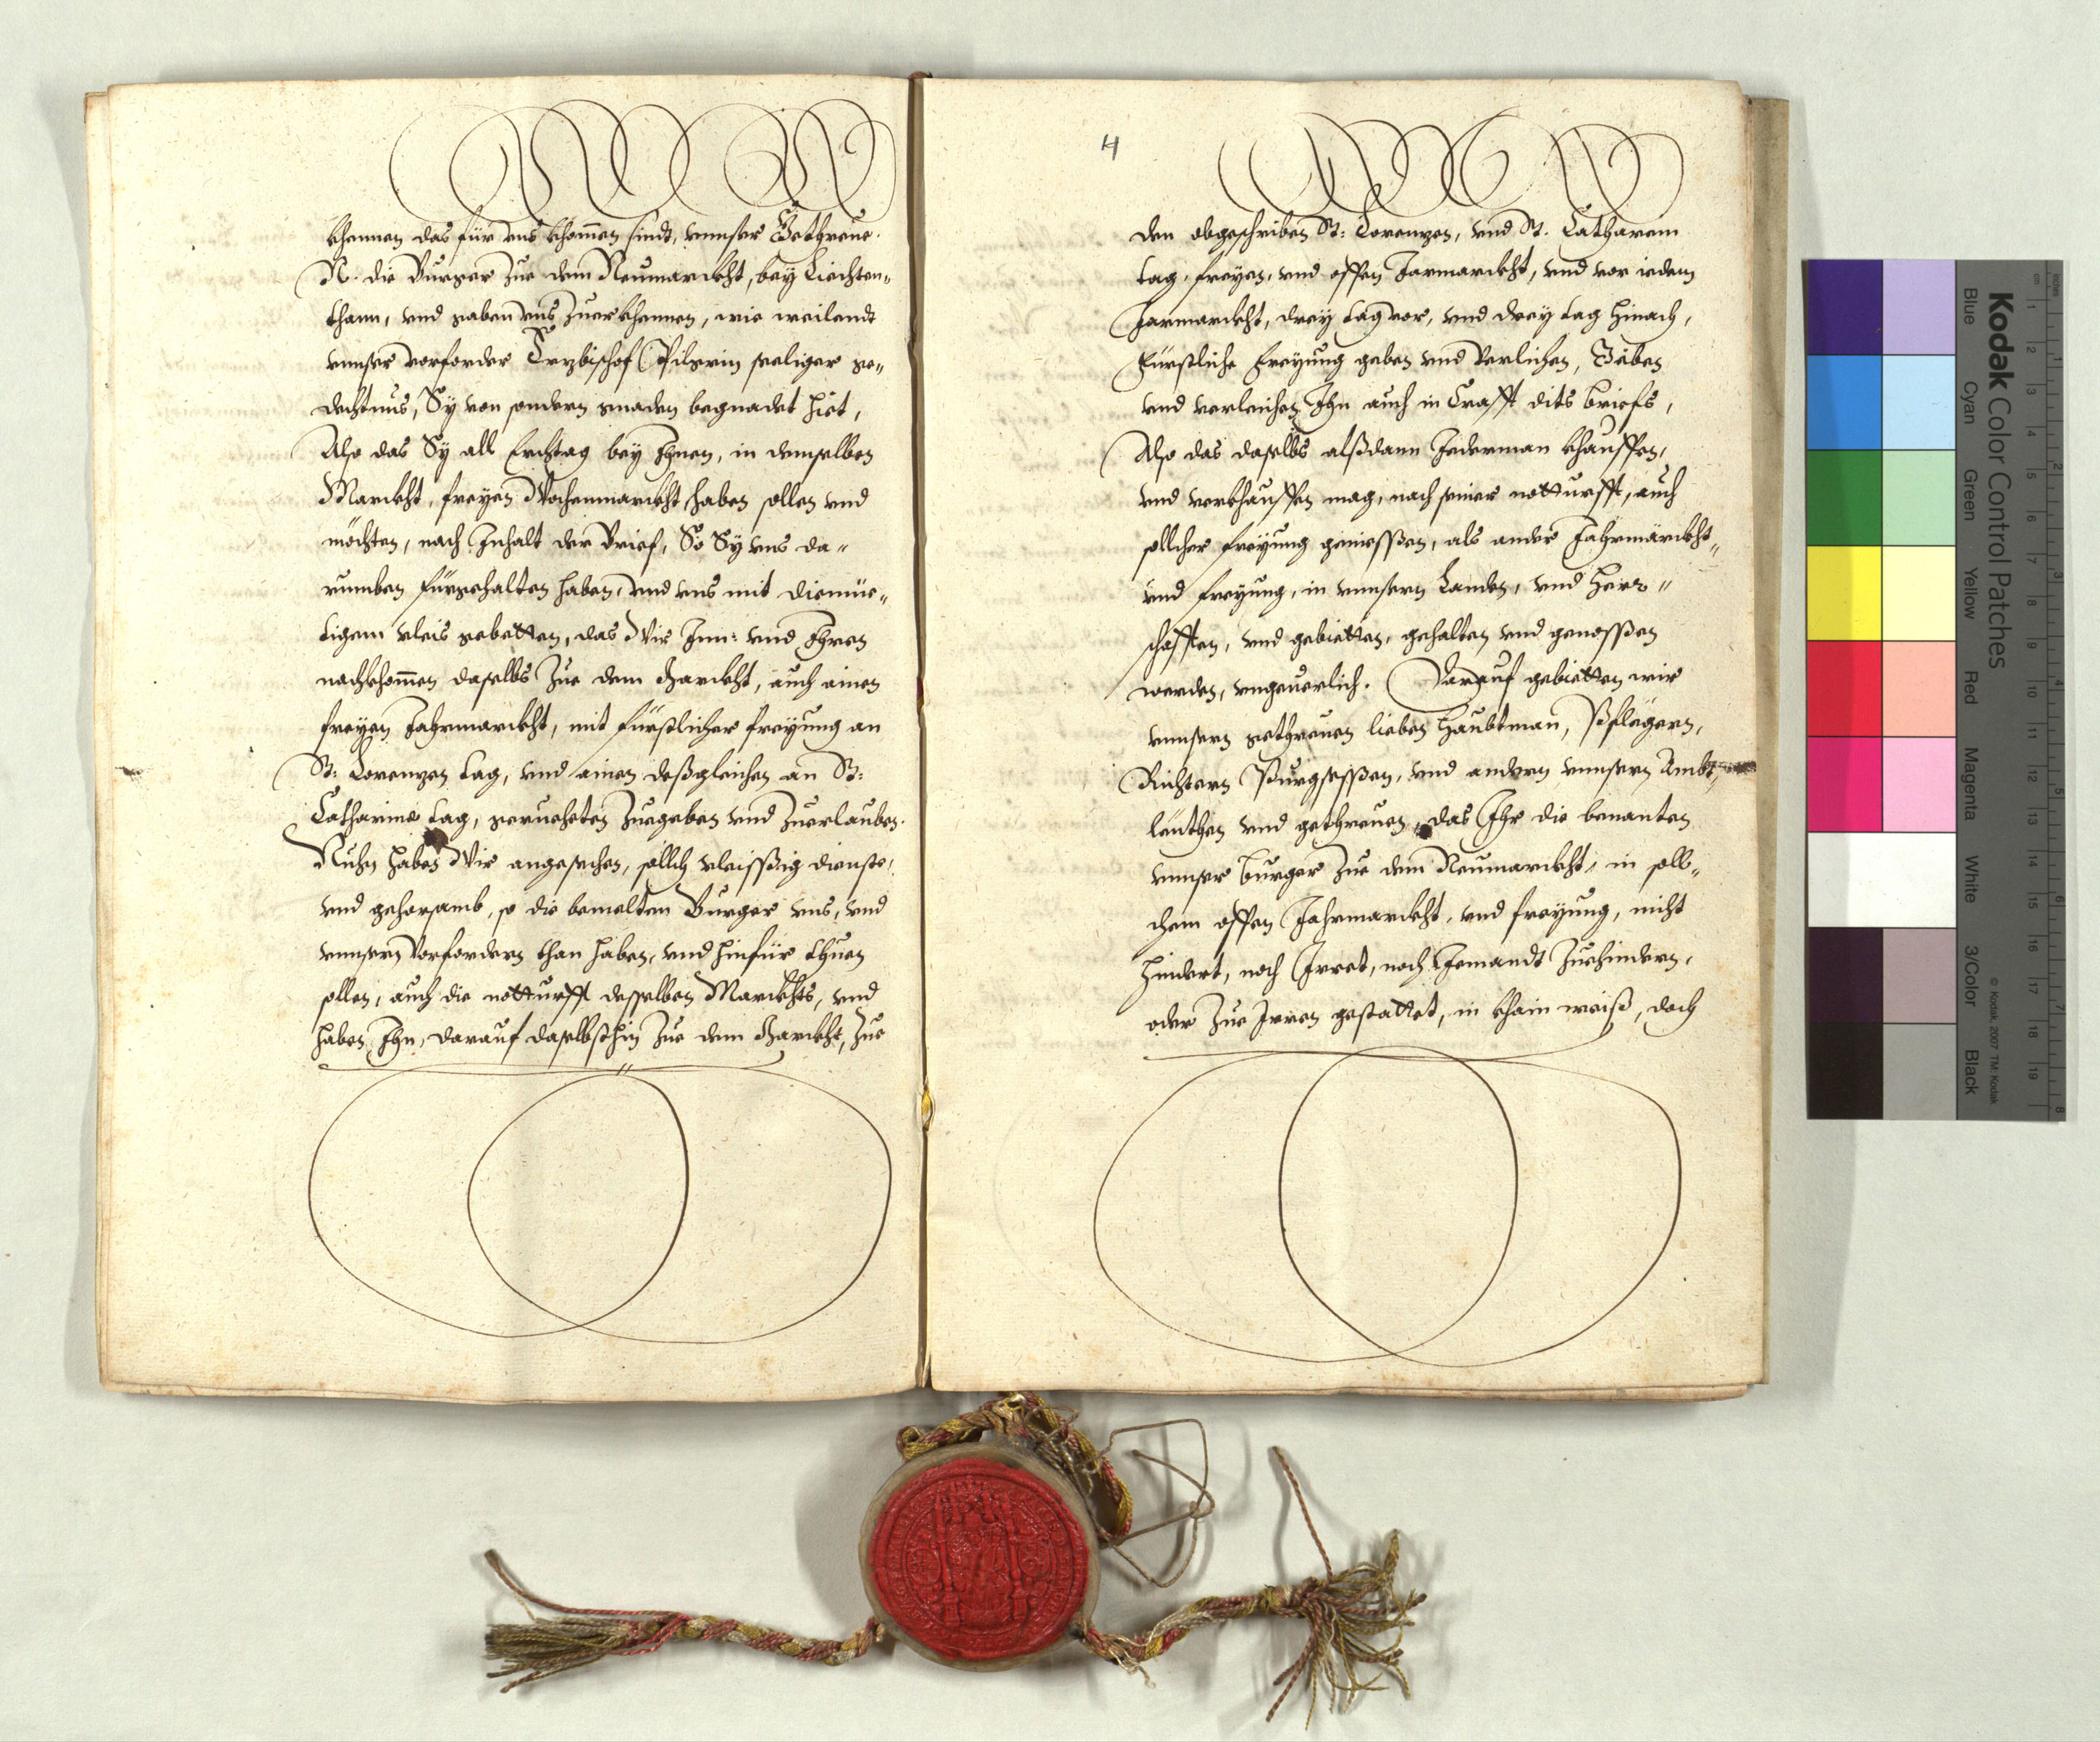 khennen das für uns khom̄en sindt, unnser Gethreue.
N. die Burger zue dem Neumarckht, bey Liechten„
thann, und gaben uns zuerkhennen, wie weilandt
unnser vorforder Erzbischof Pilgrin seeliger ge„
dechtnus, Sy von sondern gnaden begnadet hiet,
Also das Sy all Erchtag bey Ihnen, in demselben
Marckht, freyen Wochenmarckht haben sollen und
möchten, nach Inhalt der Brief, So Sy uns da„
rumben fürgehalten haben, und uns mit diemüe„
tigem vleis gebetten, das Wir Inn: und Ihren
nachkhom̄en daselbs zue dem Marckht, auch ainen
freyen Jahrmarckht, mit fürstlicher freyung an
St: Lorenzen tag, und ainen deßgleichen an St:
Catharina tag, geruecheten zuegeben und zuerlauben.
Nuhn haben Wir angesechen, sollch vleissßig dienste,
und gehorsamb, so die bemelten Burger uns, und
unnsern Vorfordern than haben, und hinfür thuen
sollen, auch die notturfft desselben Marckhts, und
haben Ihn, darauf daselbsthin zue dem Marckht, zue
4
den obgeschriben St: Lorenzen, und St. Catharein
tag, freyen, und offen Jarmarckht, und vor iedem
Jarmarckht, drey tag vor, und drey tag hinach,
Fürstliche Freyung geben und Verlichen, Geben
und verleichen Ihn auch in Crafft dits briefs,
Also das daselbs alßdann Jederman khauffen,
und verkhauffen mag, nach seiner notturfft, auch
sollcher freyung geniessßen, als ander Jahrmärckht„
und freyung, in unnsern Landen, und Herr„
schafften, und gebietten, gehalten und genossßen
werden, ungeuerlich. Darauf gebietten wir
unnsern gethreuen lieben Haubtman, Pflegern,
Richtern Burgsessßen, und andern unnsern Ambt„
leuthen und gethreuen, das Ihr die benanten
unnser Burger zue dem Neumarckht, in soll„
chem offen Jahrmarckht, und freyung, nicht
hindert, noch Irret, noch Jemandt zuehindern,
oder zue Irren gestattet, in khain weiß, doch
Kodak Color Control Patches
Blue Cyan Green Yellow Red Magenta White 3/Color Black
© Kodak, 2007 TM: Kodak